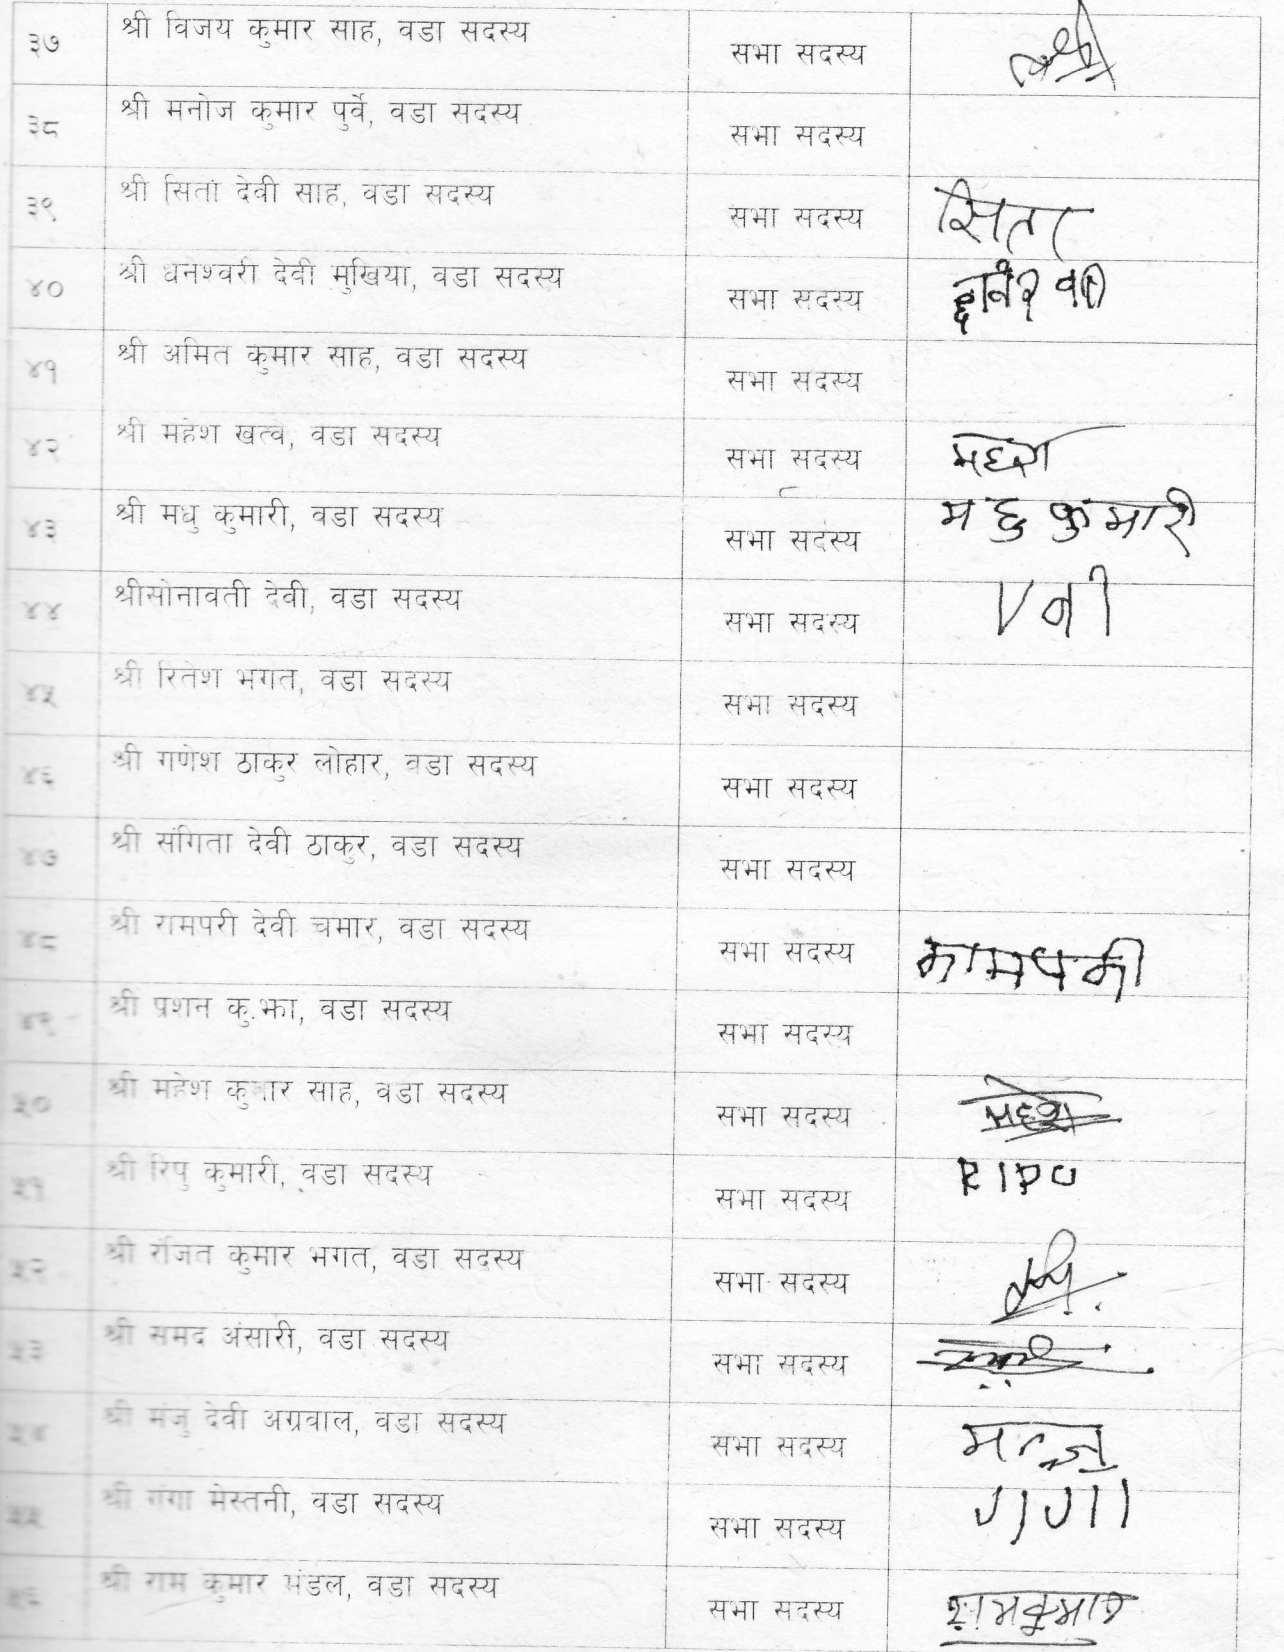 ३७ श्री विजय कुमार साह, वडा सदस्य सभा सदस्य
३८ श्री मनोज कुमार पुर्वे, वडा सदस्य सभा सदस्य
३९ श्री सिता देवी साह, वडा सदस्य सभा सदस्य सिता
४० श्री धनेश्वरी देवी मुखिया, वडा सदस्य सभा सदस्य
४१ श्री अमित कुमार साह, वडा सदस्य सभा सदस्य
४२ श्री महेश खत्वे, वडा सदस्य सभा सदस्य महेश
४३ श्री मधु कुमारी, वडा सदस्य सभा सदस्य मधु कुमारी
४४ श्रीसोनावती देवी, वडा सदस्य सभा सदस्य
४५ श्री रितेश भगत, वडा सदस्य सभा सदस्य
४६ श्री गणेश ठाकुर लोहार, वडा सदस्य सभा सदस्य
४७ श्री संगिता देवी ठाकुर, वडा सदस्य सभा सदस्य
४८ श्री रामपरी देवी चमार, वडा सदस्य सभा सदस्य
४९ श्री प्रशन कु.झा, वडा सदस्य सभा सदस्य
५० श्री महेश कुमार साह, वडा सदस्य सभा सदस्य महेश
५१ श्री रिपु कुमारी, वडा सदस्य सभा सदस्य RIPU
५२ श्री रंजित कुमार भगत, वडा सदस्य सभा सदस्य
५३ श्री समद अंसारी, वडा सदस्य सभा सदस्य
५४ श्री मंजु देवी अग्रवाल, वडा सदस्य सभा सदस्य मन्जु
५५ श्री गंगा मेस्तनी, वडा सदस्य सभा सदस्य
५६ श्री राम कुमार मंडल, वडा सदस्य सभा सदस्य रामकुमार